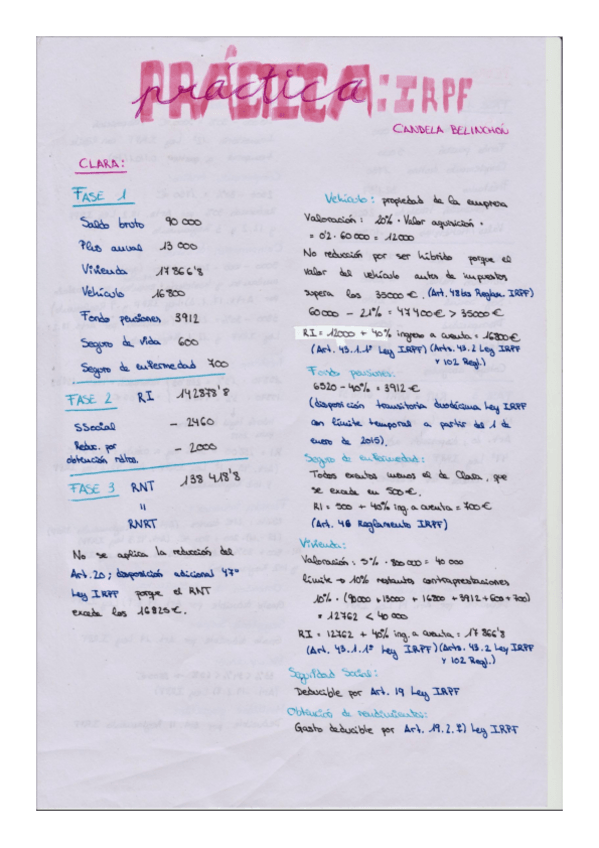 PRÁCTICA: IRPF
práctica
CANDELA BELINCHÓN
CLARA:
FASE 1
Saldo bruto 90 000
Plus anual 13 000
Vivienda 17866'8
Vehículo 16 800
Fondo pensiones 3912
Seguro de vida 600
Seguro de enfermedad 700
FASE 2 RI 142878'8
SSocial - 2460
Reduc. por - 2000
obtención rdtos.
FASE 3 RNT 138 418'8
"
RNRT
No se aplica la reducción del
Art. 20; disposición adicional 47ª
Ley IRPF porque el RNT
excede los 16825€.
Vehículo: propiedad de la empresa
Valoración: 20% · Valor aquisición ·
= 0'2 · 60 000 = 12000
No reducción por ser híbrido porque el
valor del vehículo antes de impuestos
supera los 35000€. (Art. 48bis Reglam. IRPF)
60000 - 21% = 47400€ > 35000€
RI = 12000 + 40% ingreso a cuenta = 16800€
(Art. 43.1.1º Ley IRPF) (Arts. 43.2 Ley IRPF
y 102 Regl.)
Fondo pensiones:
6520 - 40% = 3912€
(disposición transitoria duodécima Ley IRPF
con límite temporal a partir del 1 de
enero de 2015).
Seguro de enfermedad:
Todos exentos menos el de Clara, que
se excede en 500€.
RI = 500 + 40% ing a cuenta = 700€
(Art. 46 Reglamento IRPF)
Vivienda:
Valoración: 5% · 800 000 = 40 000
límite → 10% restantes contraprestaciones
10% · (90000 + 13000 + 16800 + 3912 + 600 + 700)
= 12762 < 40 000
RI = 12762 + 40% ing. a cuenta = 17866'8
(Art. 43.1.1º Ley IRPF) (Arts. 43.2 Ley IRPF
y 102 Regl.)
Seguridad Social:
Deducible por Art. 19 Ley IRPF
Obtención de rendimientos:
Gasto deducible por Art. 19.2.f) Ley IRPF